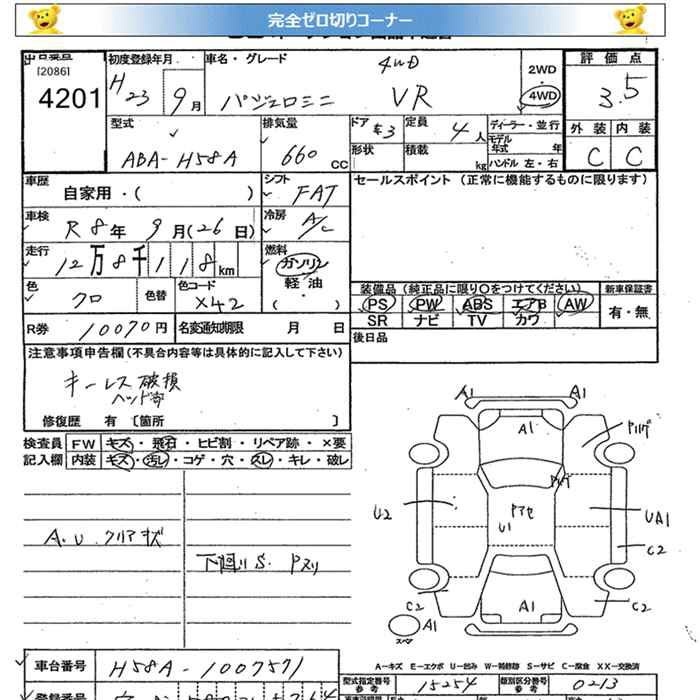 完全ゼロ切りコーナー
[2086]
4201
初度登録年月
H23 9月
車名・グレード
4WD
パジェロミニ VR
2WD
4WD
評価点
3.5
外装 内装
C C
型式
ABA-H58A
排気量
660 cc
ドア 3
定員 4人
形状
積載 kg
ディーラー・並行
モデル年式 年
ハンドル 左・右
車歴
自家用・( )
シフト
FAT
セールスポイント (正常に機能するものに限ります)
車検
R8年 9月(26日)
冷房
A/C
走行
12万8千118km
燃料
ガソリン
軽・油
( )
色
クロ
色替
色コード
X42
装備品 (純正品に限り〇をつけてください)
新車保証書
PS PW ABS エアB AW
有・無
SR ナビ TV カワ
R券 10070円
名変通知期限 月 日
後日品
注意事項申告欄(不具合内容等は具体的に記入して下さい)
キーレス破損
ヘッド部
修復歴 有 〔箇所 〕
検査員 FW キズ・飛石・ヒビ割・リペア跡・×要
記入欄 内装 キズ・汚レ・コゲ・穴・スレ・キレ・破レ
A.U.クリアキズ
下回りS. Pヌリ
A1 A1
A1
Pハゲ
Pハゲ
U2
Pアセ
U1
UA1
C2
C2
A1
C2
A1
スペア
A-キズ E-エクボ U-凹み W-補修跡 S-サビ C-腐食 XX-交換済
車台番号 H58A-1007571
型式指定番号 参考 15254
類別区分番号 参考 0213
登録番号